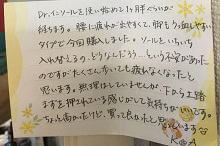 Dr.インソールを使い始めて1ヶ月ぐらいが
経ちます。腰に疲れが出やすくて、脚もつり出しやすい
タイプで今回購入しました。ソールをいちいち
入れ替えるの、どうなんだろう…という不安があった
のですがたくさん歩いても疲れなくなったと
思います。無理はしていませんが、下から土踏
まずを押されている感じがして気持ちがいいです。
ちょっと高かったけど、買って良かったと思っています